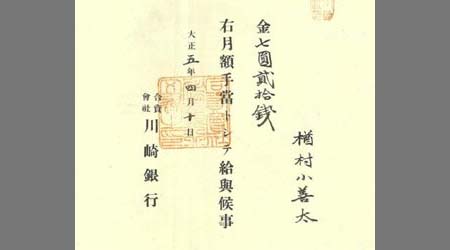 楢村小善太
金七圓貳拾錢
右月額手當トシテ給與候事
大正五年四月十日
合資會社 川崎銀行